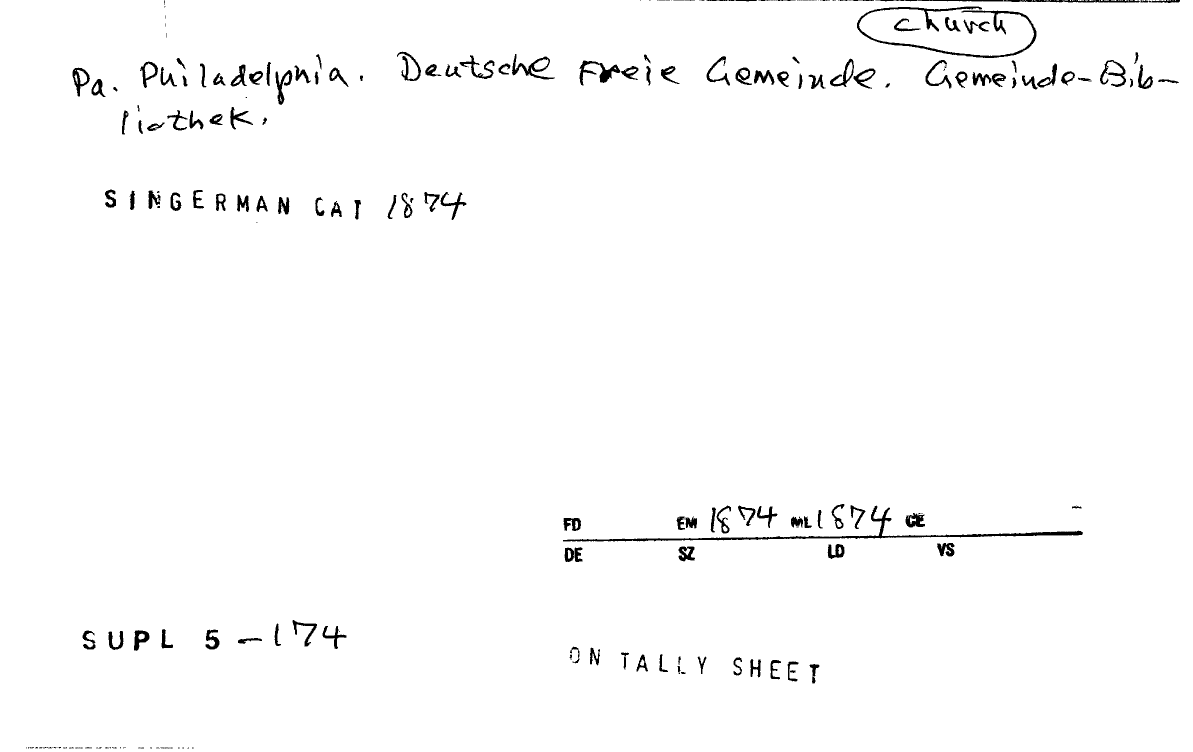 church
Pa. Philadelphia. Deutsche Freie Gemeinde. Gemeinde-Bib-
liothek.
SINGERMAN CAT 1874
FD EM 1874 ML 1874 CE -
DE SZ LD VS
SUPL 5-174
ON TALLY SHEET